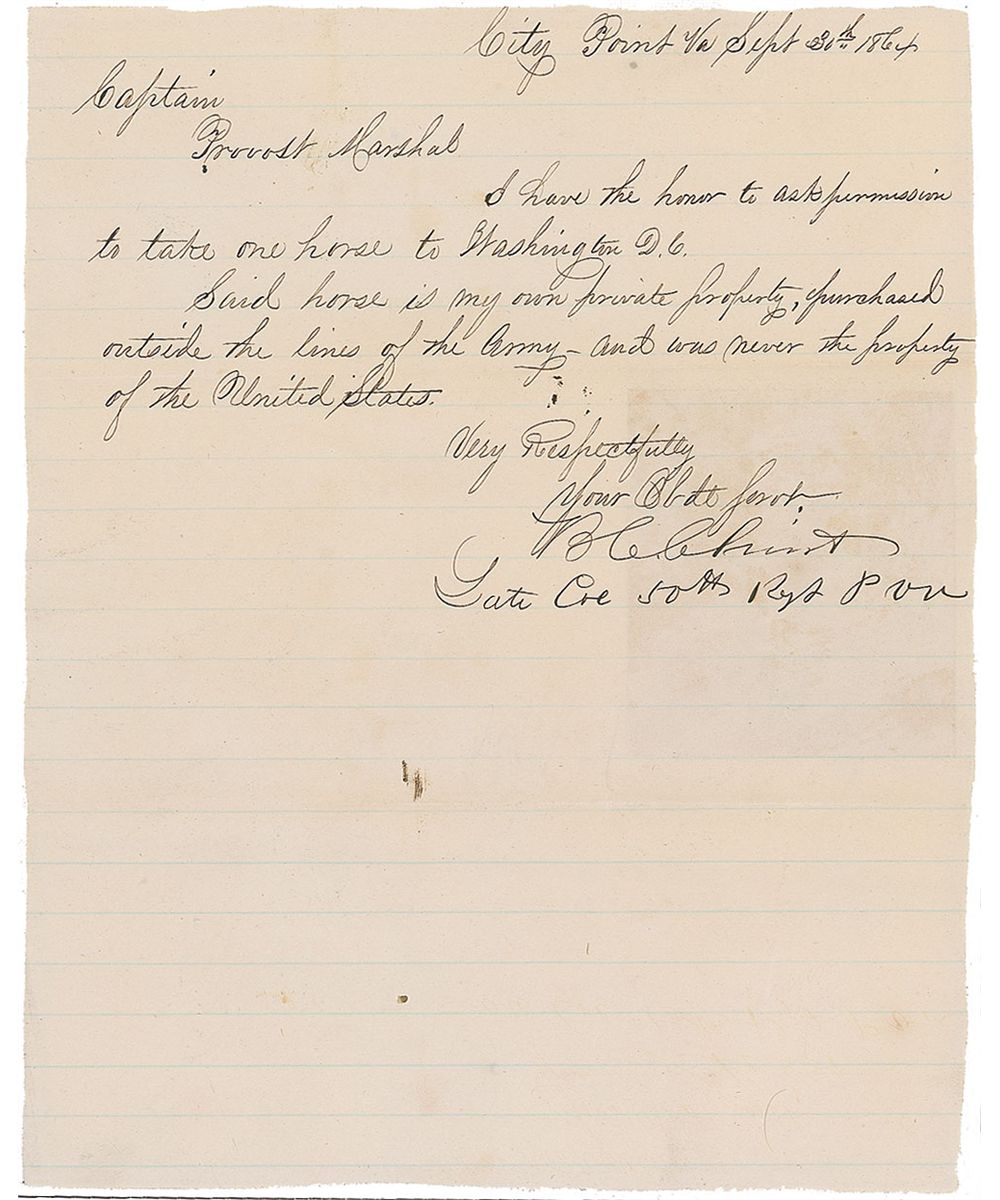 City Point Va Sept 30th 1864
Captain
Provost Marshal
I have the honor to ask permission
to take one horse to Washington D.C.
Said horse is my own private property, purchased
outside the lines of the Army - and was never the property
of the United States.
Very Respectfully
Your Obdt Servt.
B C Christ
Late Col 50th Regt P V V